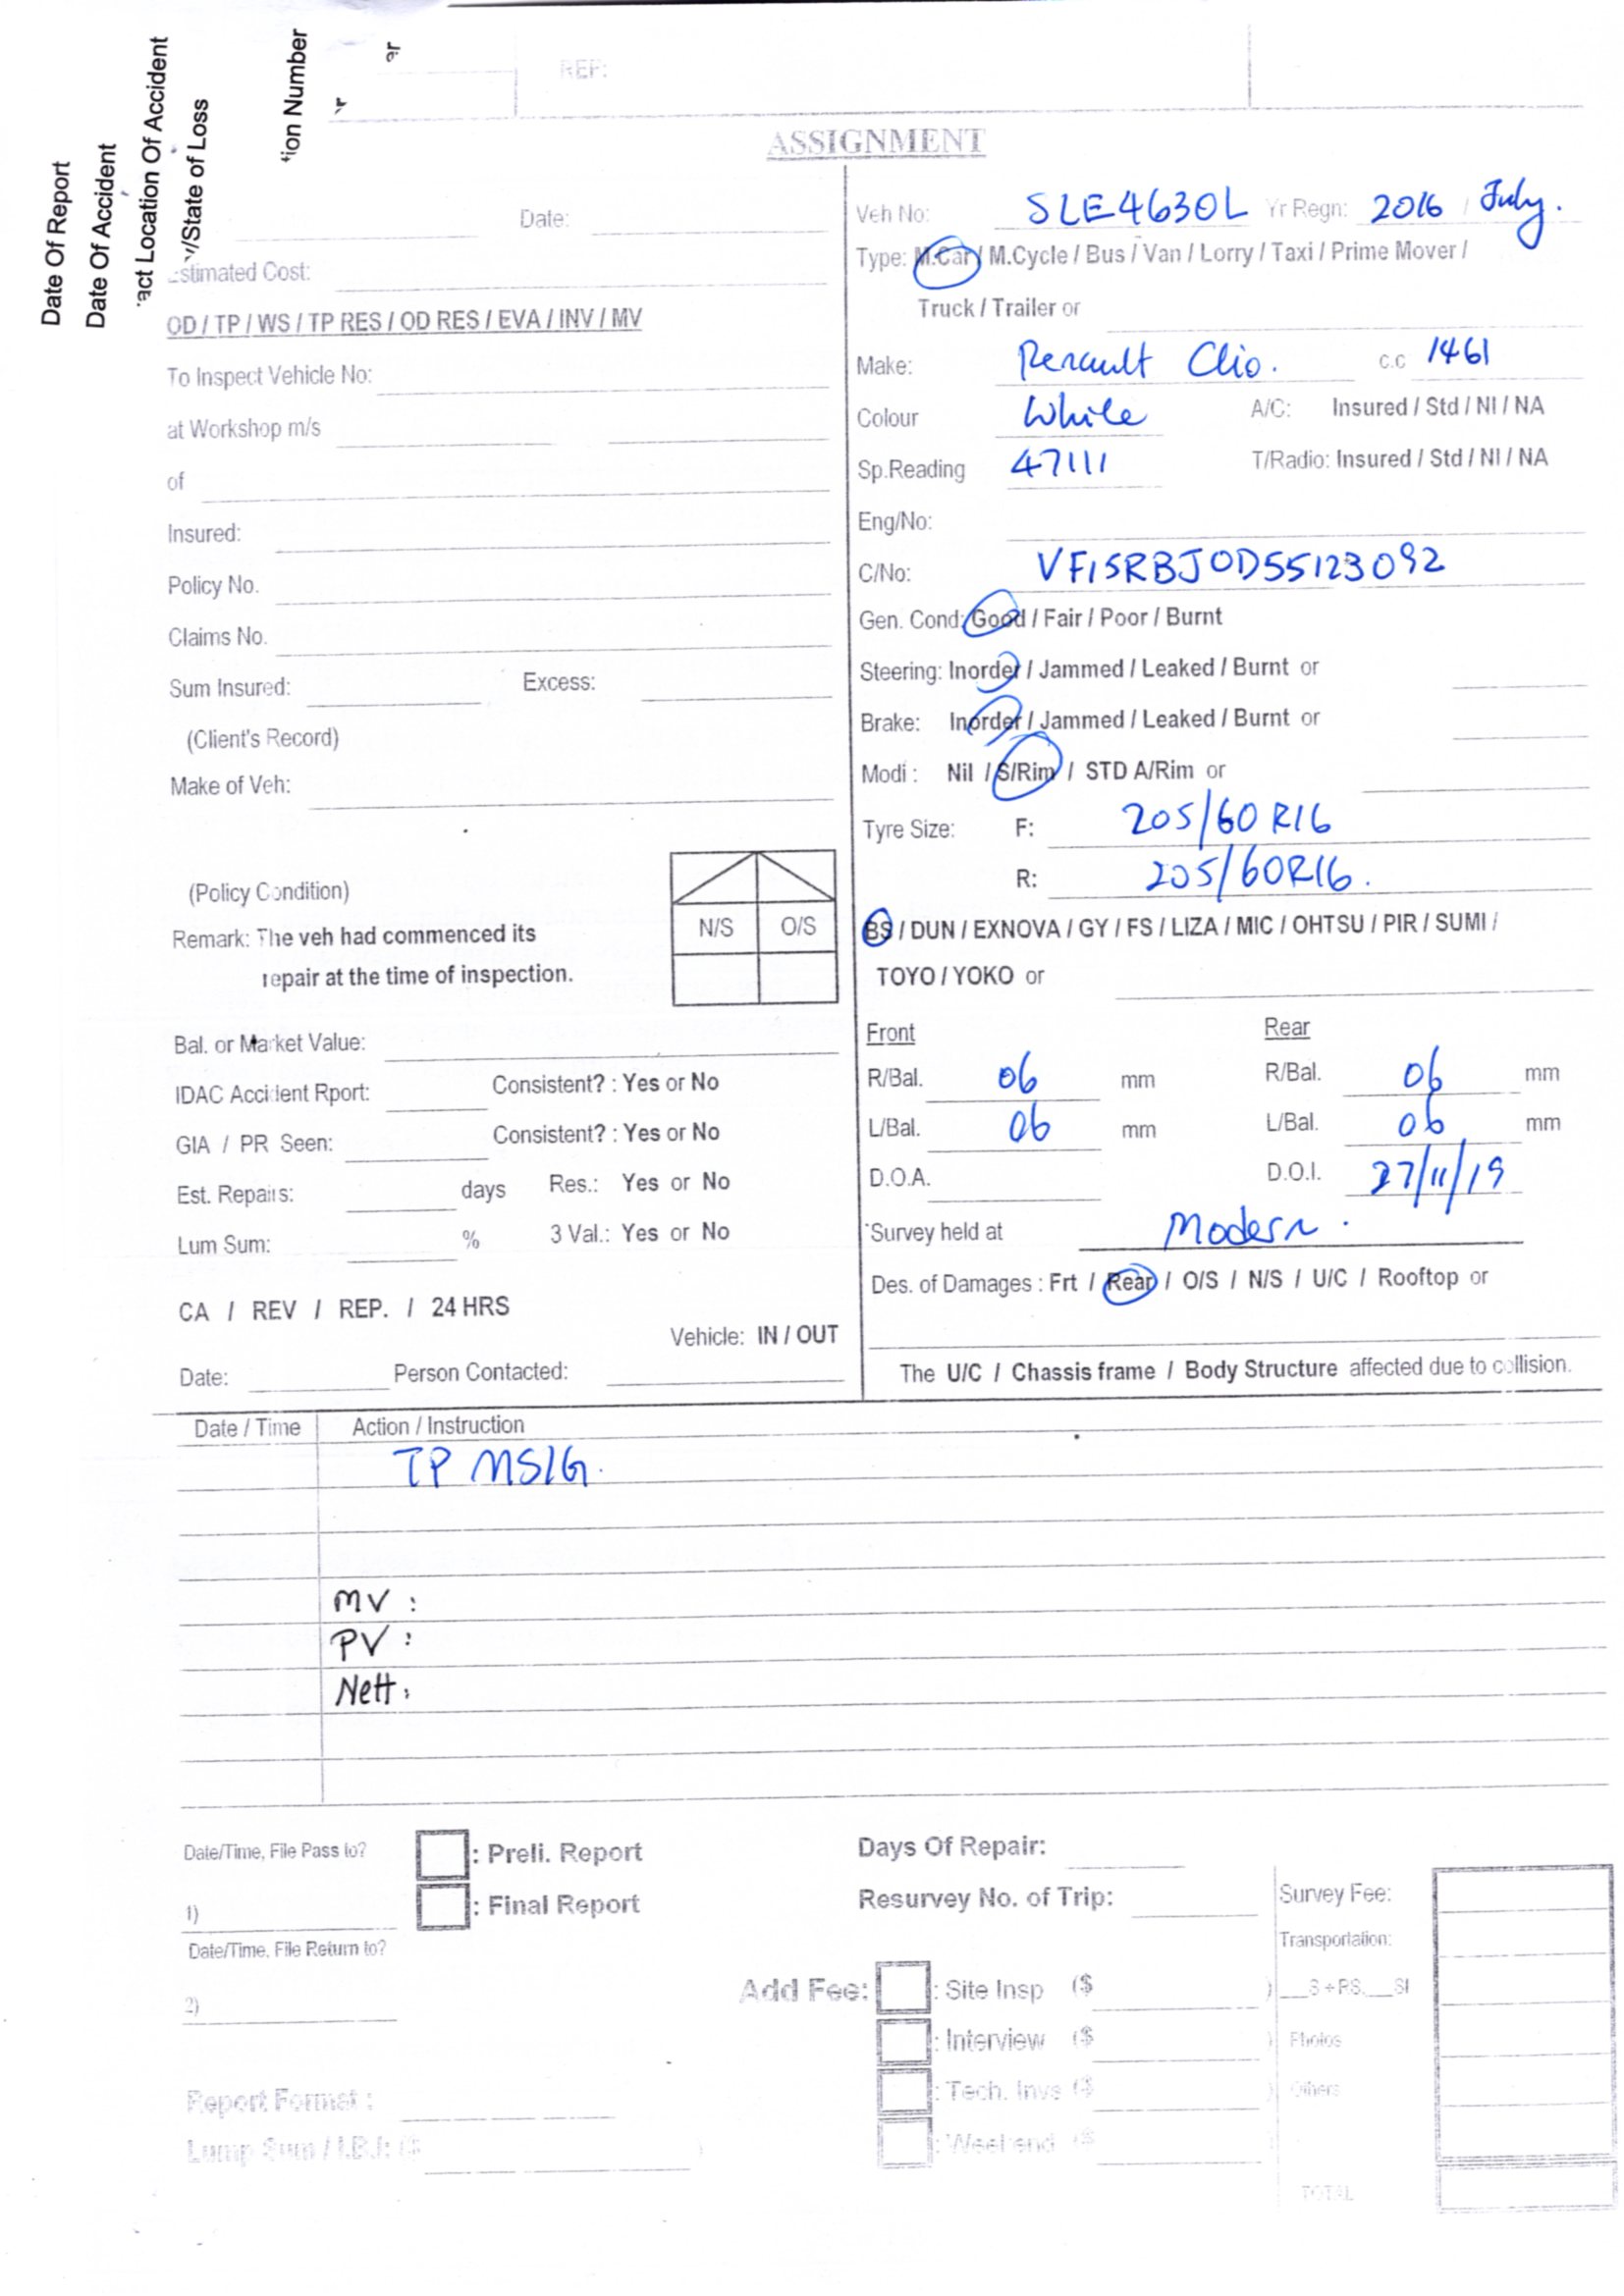 Date Of Report
Date Of Accident
act Location Of Accident
y/State of Loss
ion Number
er
REF:
ASSIGNMENT
Date:
Estimated Cost:
OD / TP / WS / TP RES / OD RES / EVA / INV / MV
To Inspect Vehicle No:
at Workshop m/s
of
Insured:
Policy No.
Claims No.
Sum Insured: Excess:
(Client's Record)
Make of Veh:
(Policy Condition)
Remark: The veh had commenced its
repair at the time of inspection.
N/S O/S
Bal. or Market Value:
IDAC Accident Rport: Consistent? : Yes or No
GIA / PR Seen: Consistent? : Yes or No
Est. Repairs: days Res.: Yes or No
Lum Sum: % 3 Val.: Yes or No
CA / REV / REP. / 24 HRS
Vehicle: IN / OUT
Date: Person Contacted:
Veh No: SLE4630L Yr Regn: 2016 / July.
Type: M.Car / M.Cycle / Bus / Van / Lorry / Taxi / Prime Mover /
Truck / Trailer or
Make: Renault Clio. c.c 1461
Colour White A/C: Insured / Std / NI / NA
Sp.Reading 47111 T/Radio: Insured / Std / NI / NA
Eng/No:
C/No: VF15RBJ0D55123092
Gen. Cond: Good / Fair / Poor / Burnt
Steering: Inorder / Jammed / Leaked / Burnt or
Brake: Inorder / Jammed / Leaked / Burnt or
Modi : Nil / S/Rim / STD A/Rim or
Tyre Size: F: 205/60 R16
R: 205/60R16.
BS / DUN / EXNOVA / GY / FS / LIZA / MIC / OHTSU / PIR / SUMI /
TOYO / YOKO or
Front Rear
R/Bal. 06 mm R/Bal. 06 mm
L/Bal. 06 mm L/Bal. 06 mm
D.O.A. D.O.I. 27/11/19
Survey held at Modern.
Des. of Damages : Frt / Rear / O/S / N/S / U/C / Rooftop or
The U/C / Chassis frame / Body Structure affected due to collision.
Date / Time Action / Instruction
TP MSIG.
MV :
PV :
Nett :
Date/Time, File Pass to? : Preli. Report Days Of Repair:
1) : Final Report Resurvey No. of Trip:
Date/Time, File Return to?
2)
Add Fee: : Site Insp ($ )
: Interview ($ )
: Tech. Invs ($ )
: Weekend ($ )
Survey Fee:
Transportation:
__S + RS.__SI
Photos
Others
TOTAL
Report Format :
Lump Sum / I.B.I: ($ )